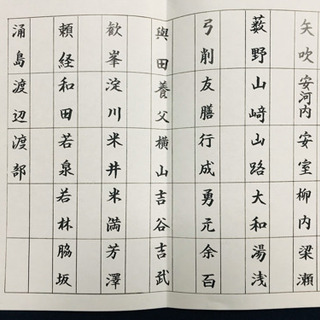 矢吹 安河内 安室 柳内 梁瀬
薮野 山﨑 山路 大和 湯浅
弓削 友膳 行成 勇元 余百
與田 養父 横山 吉谷 吉武
歓峯 淀川 米井 米満 芳澤
頼経 和田 若泉 若林 脇坂
涌島 渡辺 渡部